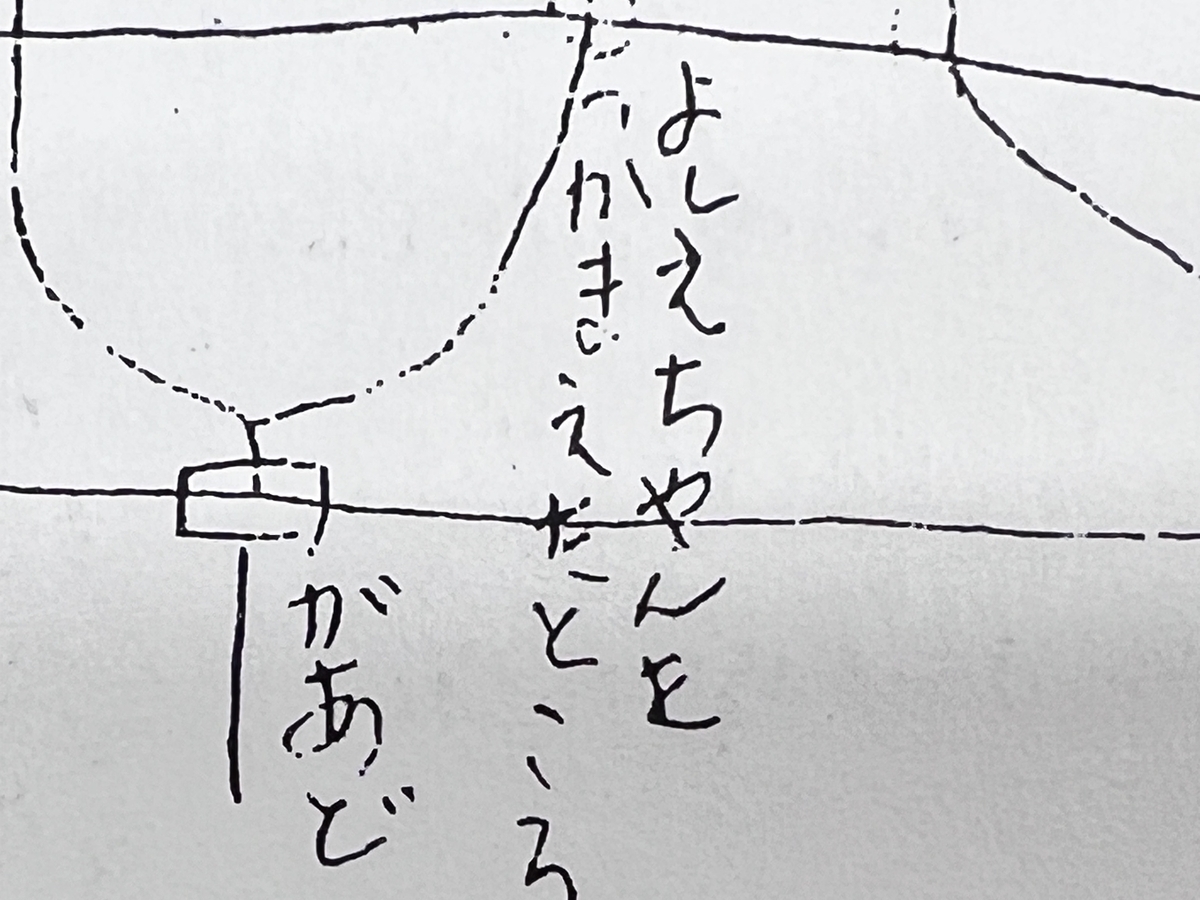 よしえちやんを
つかまえたところ
があど